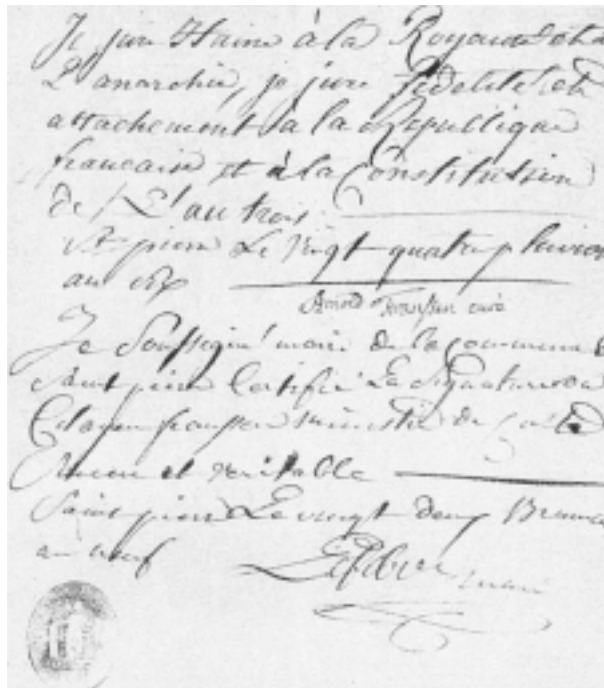 Je jure Haine à la Royauté et à
L'anarchie, je jure fidelité et
attachement à la Republique
francaise et à la Constitution
de L'an trois
St pierre Le vingt quatre pluviose
an six
Arnold franssen curé
Je Soussigné maire de la commune de
Saint pierre Certifie La Signature du
Citoyen franssen ministre du culte
et veritable
Saint pierre Le vingt deux Brumaire
an neuf
maire